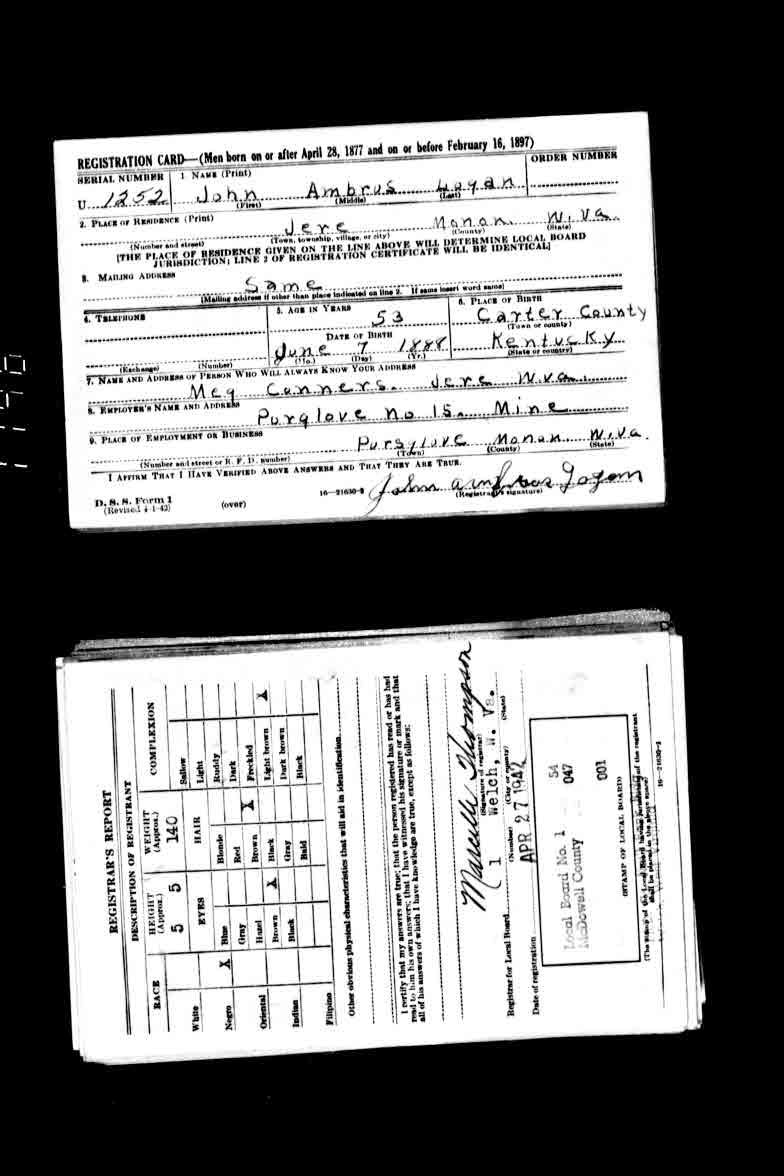 REGISTRATION CARD—(Men born on or after April 28, 1877 and on or before February 16, 1897)
SERIAL NUMBER 1 NAME (Print) ORDER NUMBER
U 1252 John Ambros Logan
(First) (Middle) (Last)
2. PLACE OF RESIDENCE (Print)
Jere Monon. W. Va.
(Number and street) (Town, township, village, or city) (County) (State)
[THE PLACE OF RESIDENCE GIVEN ON THE LINE ABOVE WILL DETERMINE LOCAL BOARD
JURISDICTION; LINE 2 OF REGISTRATION CERTIFICATE WILL BE IDENTICAL]
3. MAILING ADDRESS
Same
[Mailing address if other than place indicated on line 2. If same insert word same]
4. TELEPHONE 5. AGE IN YEARS 6. PLACE OF BIRTH
53 Carter County
(Town or county)
DATE OF BIRTH
June 7 1888 Kentucky
(Exchange) (Number) (Mo.) (Day) (Yr.) (State or country)
7. NAME AND ADDRESS OF PERSON WHO WILL ALWAYS KNOW YOUR ADDRESS
Meg Conners. Jere W.va.
8. EMPLOYER'S NAME AND ADDRESS
Purglove no 15. Mine
9. PLACE OF EMPLOYMENT OR BUSINESS
Pursglove Monon W.Va.
(Number and street or R. F. D. number) (Town) (County) (State)
I AFFIRM THAT I HAVE VERIFIED ABOVE ANSWERS AND THAT THEY ARE TRUE.
D. S. S. Form 1
(Revised 4-1-42) (over) 16—21630-2 John
(Registrant's signature)
REGISTRAR'S REPORT
DESCRIPTION OF REGISTRANT
RACE HEIGHT (Approx.) WEIGHT (Approx.) COMPLEXION
5 5 140
EYES HAIR
White X Blue Blonde Sallow
Light
Negro Gray Red Ruddy
Dark
Oriental Hazel Brown X Freckled
Brown X Black Light brown X
Indian Black Gray Dark brown
Bald Black
Filipino
Other obvious physical characteristics that will aid in identification
I certify that my answers are true; that the person registered has read or has had
read to him his own answers; that I have witnessed his signature or mark and that
all of his answers of which I have knowledge are true, except as follows:
Marcelle Thompson
(Signature of registrar)
Registrar for Local Board 1 Welch, W. Va.
(Number) (City or county) (State)
Date of registration APR 27 1942
Local Board No. 1 54
McDowell County 047
001
(STAMP OF LOCAL BOARD)
(The stamp of the Local Board having jurisdiction of the registrant
shall be placed in the above space)
16—21630-2